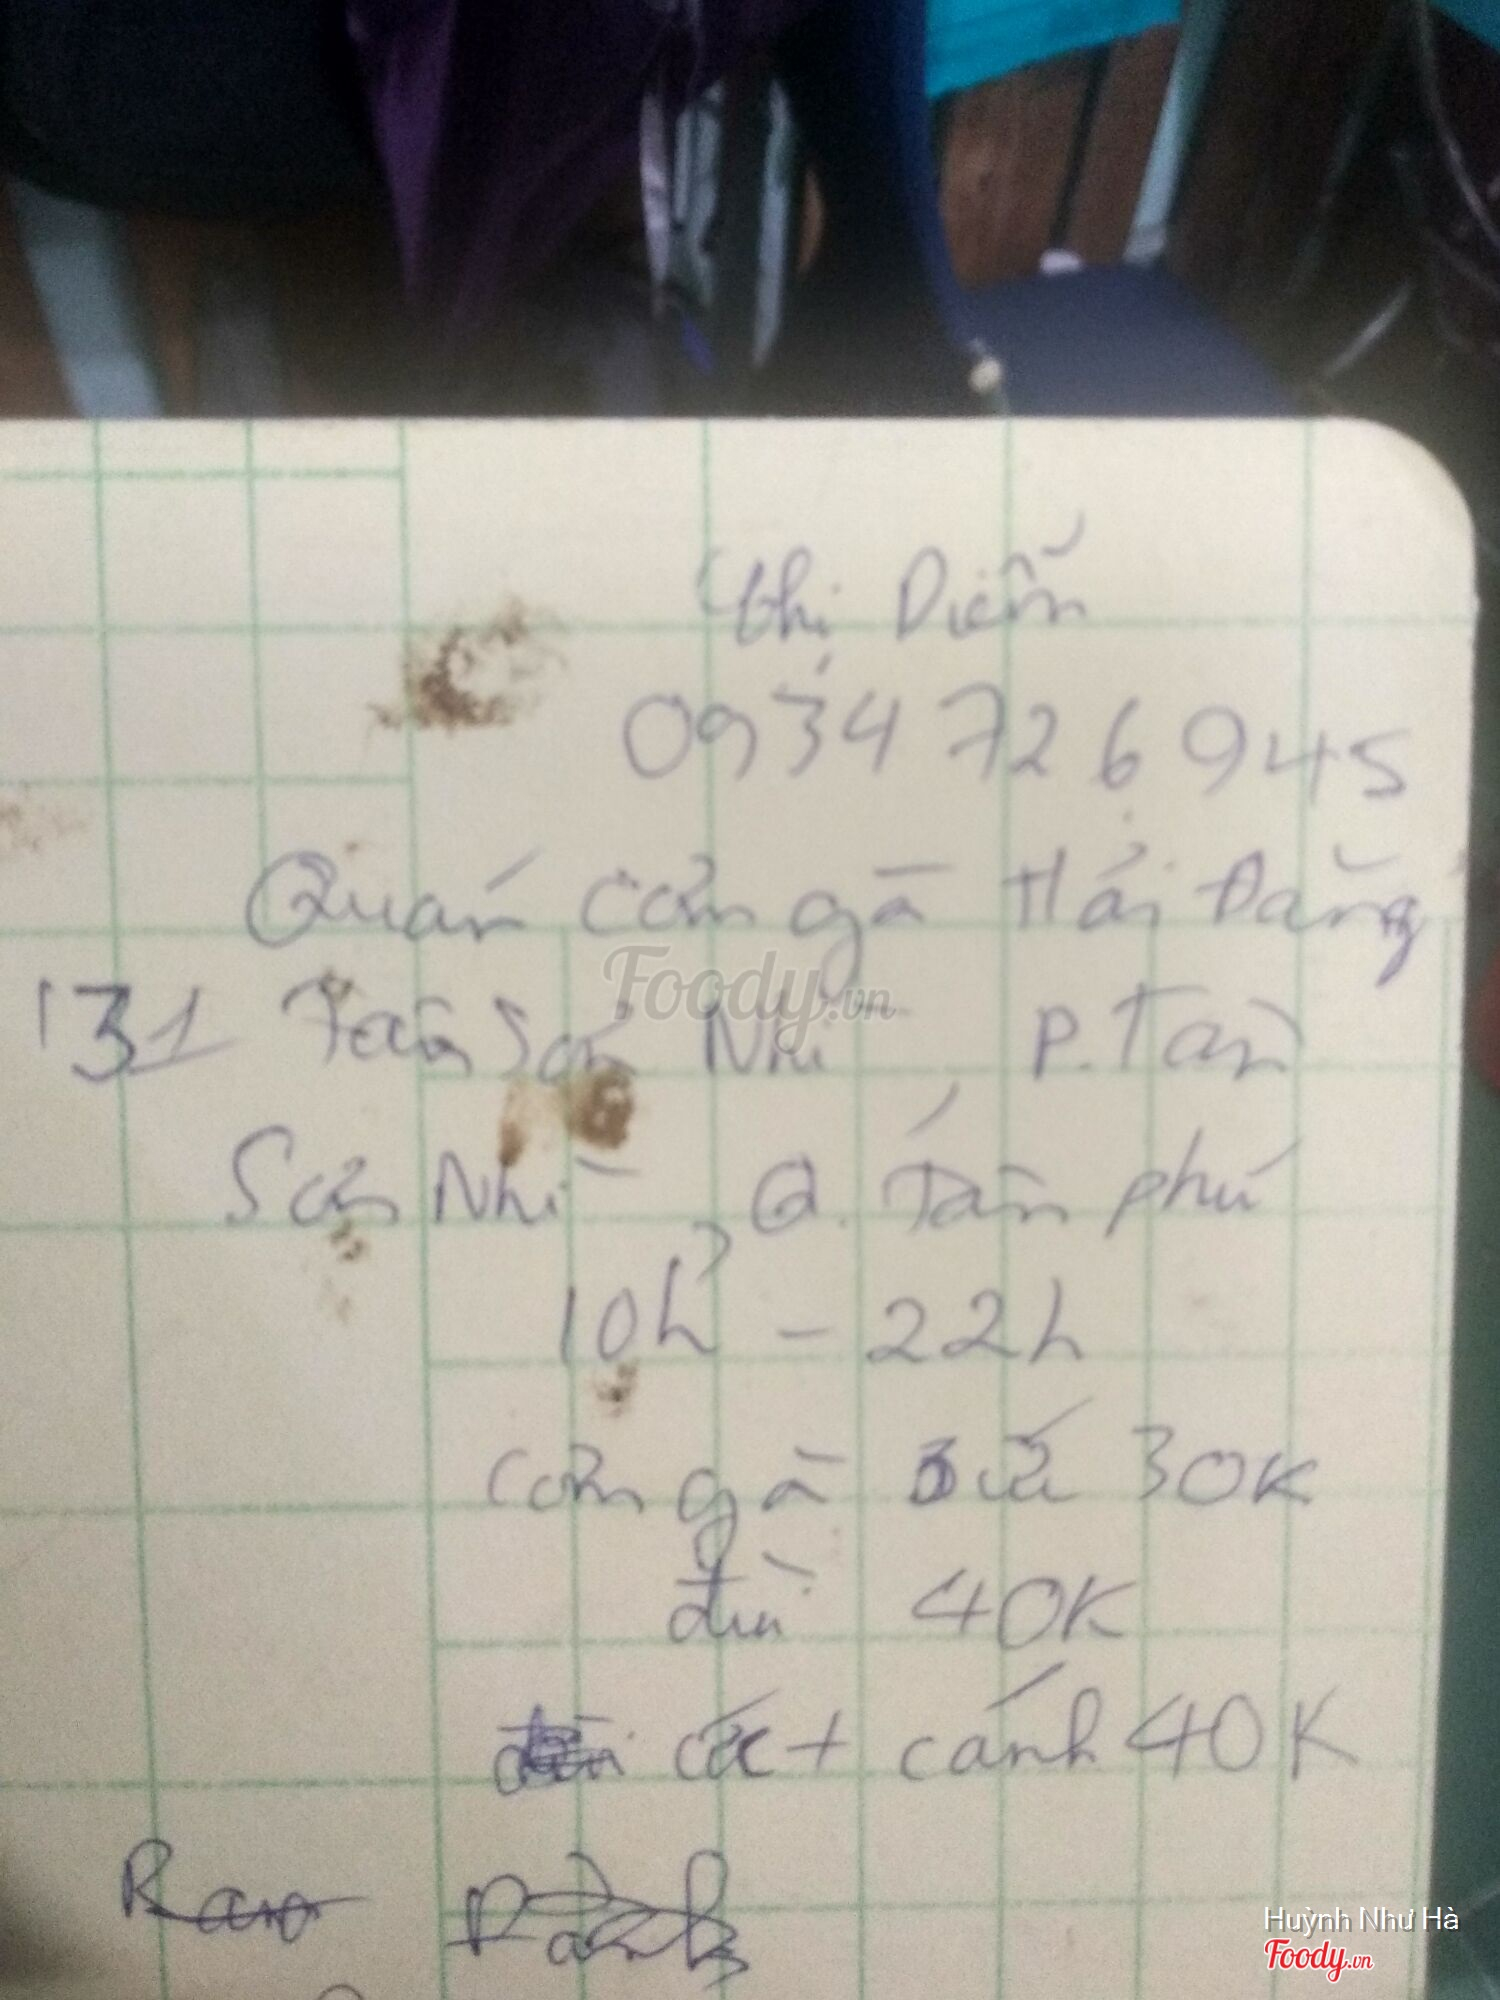 Chị Diễm
0934 726 945
Quán cơm gà Hải Đăng
131 Tân Sơn Nhì P. Tân
Sơn Nhì Q. Tân phú
10h - 22h
Foody.vn
Cơm gà ức 30K
đùi 40K
ức + cánh 40K
Huỳnh Như Hà
Foody.vn